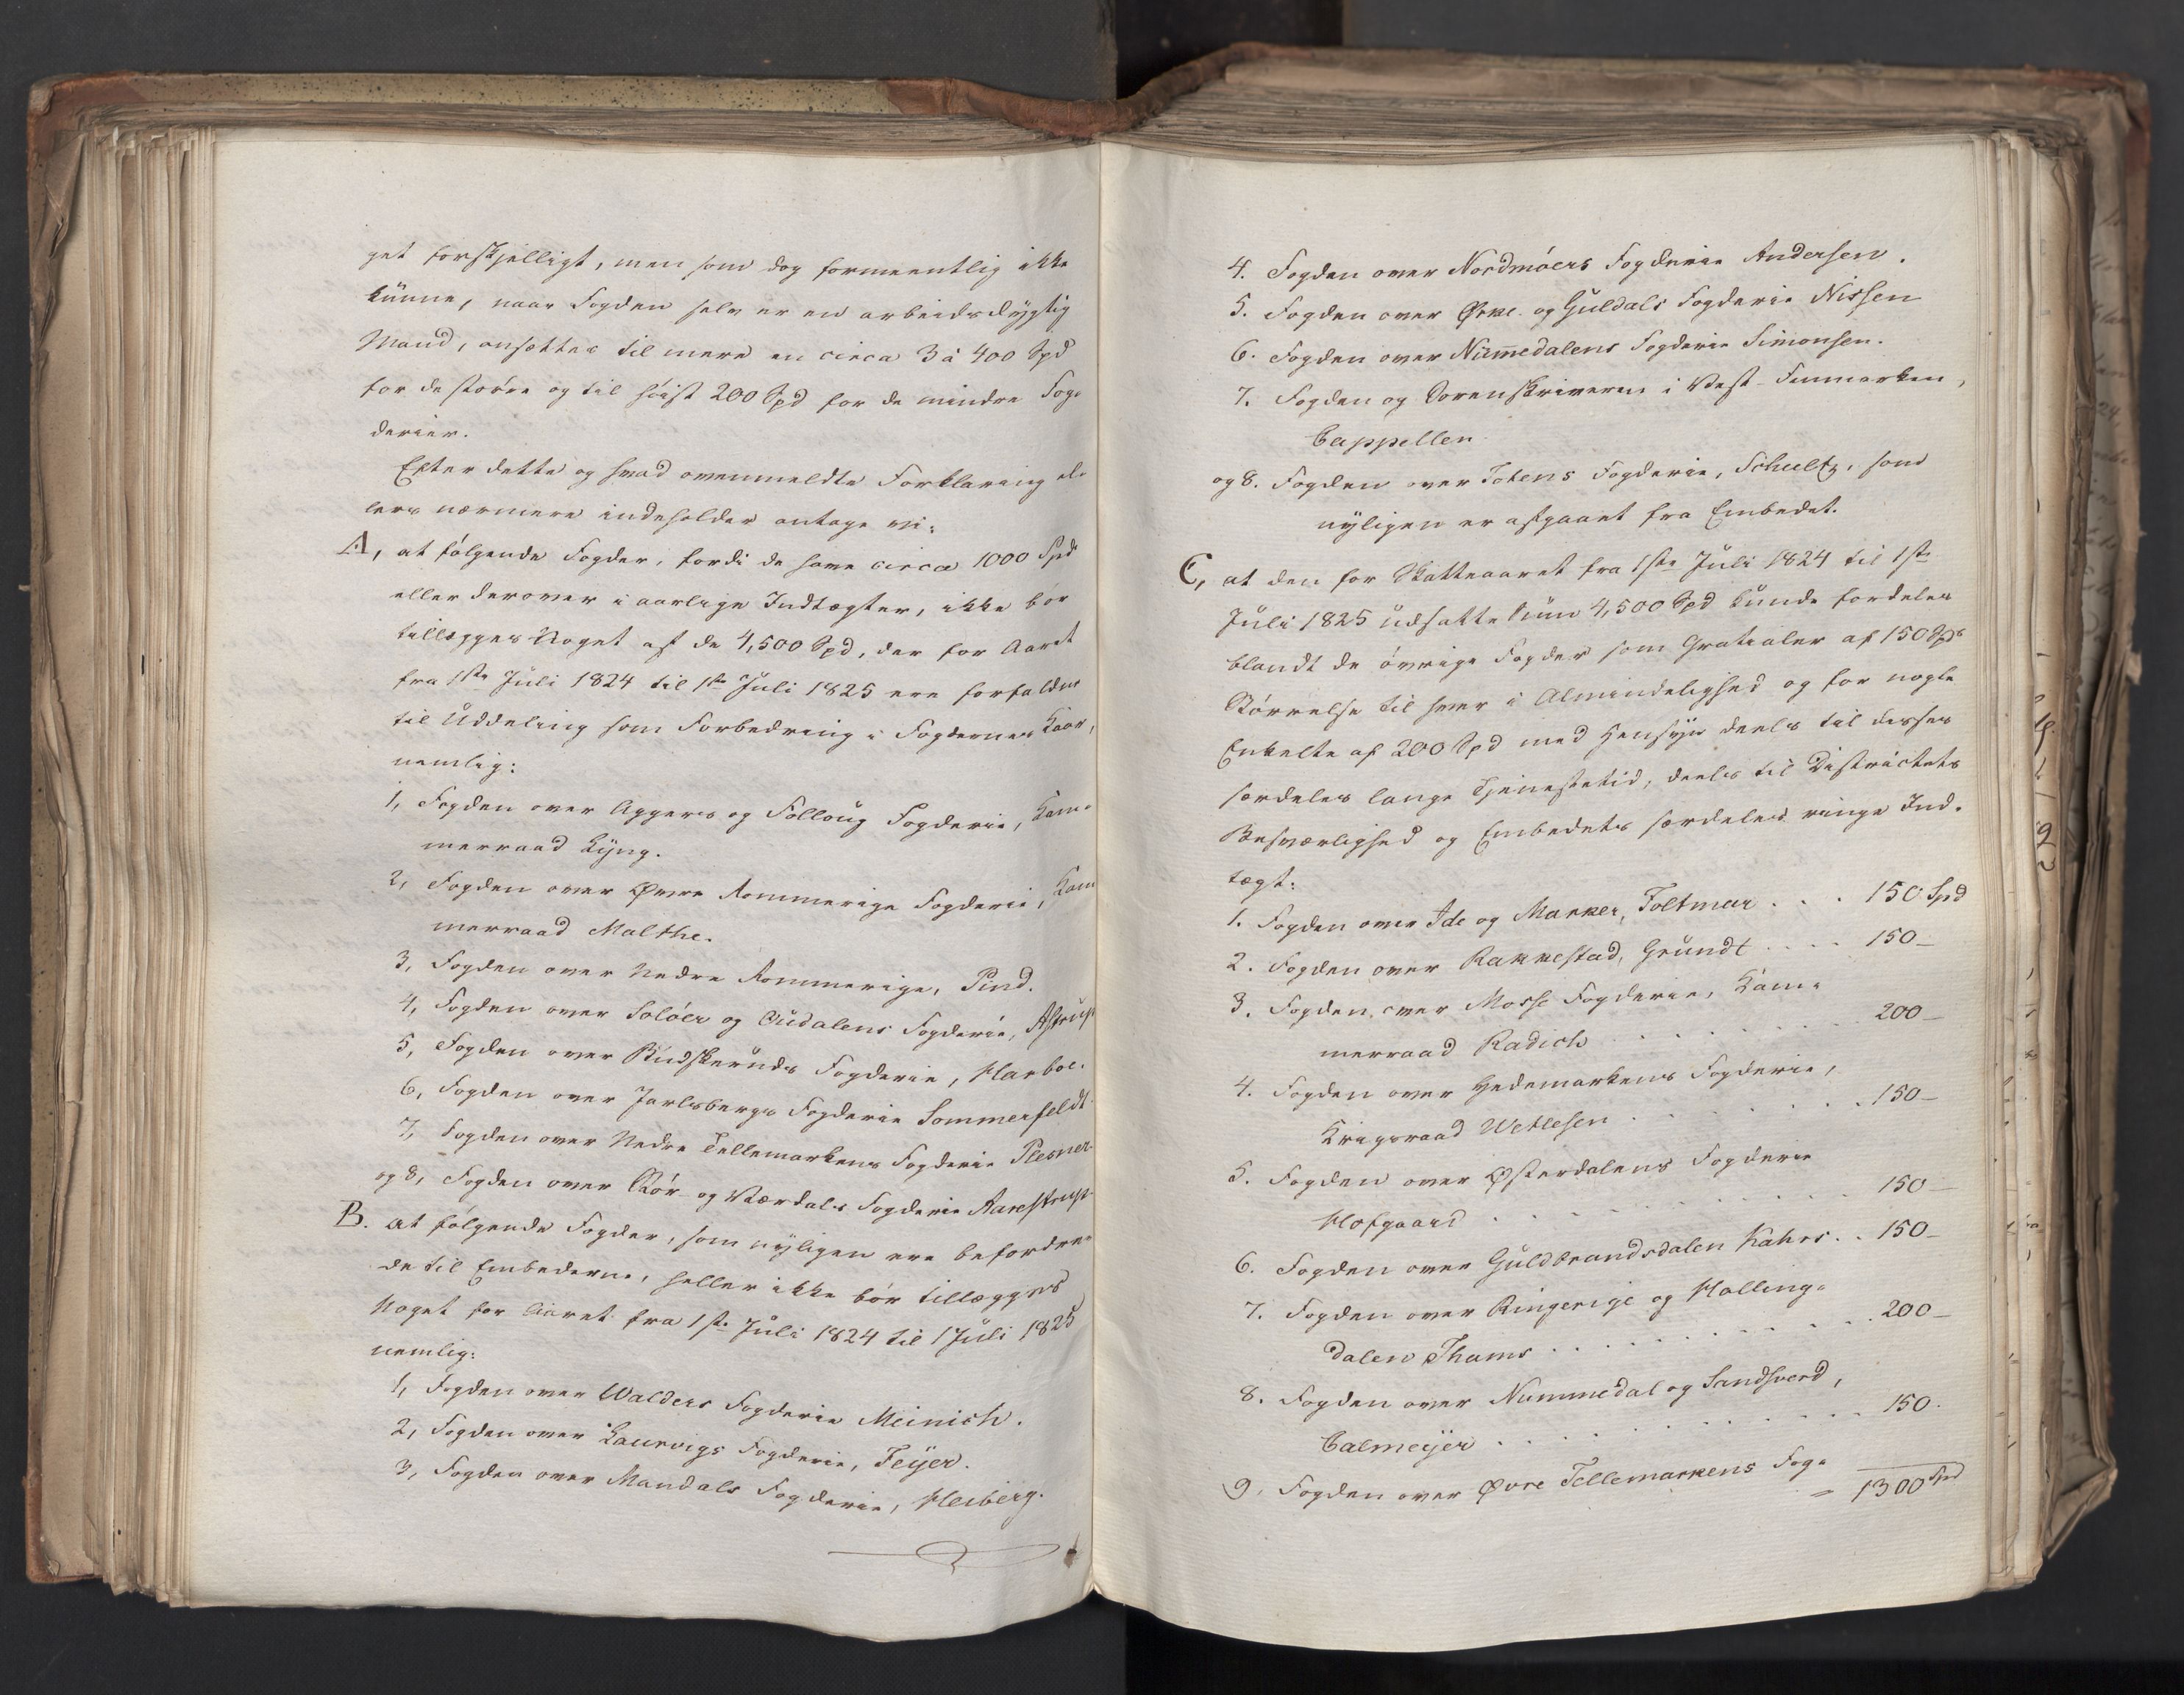 get forskjelligt, men som dog formeentlig ikke
kunne, naar Fogden selv er en arbeidsdygtig
Mand, ansættes til mere en circa 3 á 400 Spd
for de større og til høist 200 Spd for de mindre Fog-
derier.
Efter dette og hvad ovenmeldte Forklaring el-
lers nærmere indeholder antage vi:
A, at følgende Fogder, fordi de have circa 1000 Spd
eller derover i aarlige Indtægter, ikke bør
tillægges Noget af de 4,500 Spd, der for Aaret
fra 1ste Juli 1824 til 1ste Juli 1825 ere forfaldne
til Uddeling som Forbedring i Fogdernes Kaar,
nemlig:
1, Fogden over Aggers og Folloug Fogderie, Kam-
merraad Lyng.
2, Fogden over Øvre Rommerige Fogderie, Kam
merraad Malthe.
3, Fogden over Nedre Rommerige, Pind.
4, Fogden over Soløer og Oudalens Fogderie, Astrup
5, Fogden over Budskeruds Fogderie, Harboe.
6, Fogden over Jarlsbergs Fogderie Sommerfeldt
7, Fogden over Nedre Tellemarkens Fogderie Plesner
og 8, Fogden over Stør og Værdals Fogderie Aarestrup
B. at følgende Fogder, som nyligen ere befordre-
de til Embederne, heller ikke bør tillægges
Noget for Aaret fra 1ste Juli 1824 til 1 Juli 1825
nemlig:
1, Fogden over Walders Fogderie Meinich.
2, Fogden over Laurvigs Fogderie, Feyer.
3, Fogden over Mandals Fogderie, Heiberg.
4. Fogden over Nordmøers Fogderie Andersen.
5. Fogden over Ørke og Guldals Fogderie Nissen
6. Fogden over Num̅edalens Fogderie Simonsen.
7. Fogden og Sorenskriveren i Vest-Finmarken,
Cappellen
og 8. Fogden over Totens Fogderie, Schultz, som
nyligen er afgaaet fra Embedet.
C, at den for Skatteaaret fra 1ste Juli 1824 til 1ste
Juli 1825 udsatte Sum 4,500 Spd kunde fordeles
blandt de øvrige Fogder som Gratialer af 150 Spd
Størrelse til hver i Almindelighed og for nogle
Enkelte af 200 Spd med Hensyn deels til disses
særdeles lange Tjenestetid, deels til Districtets
Besværlighed og Embedets særdeles ringe Ind-
tægt:
1. Fogden over Ide og Marker, Foltmar . . . 150 Spd
2. Fogden over Rakkestad, Grundt . . . . 150 –
3. Fogden over Mosse Fogderie, Kam-
merraad Radich . . . . . . . . 200 –
4. Fogden over Hedemarkens Fogderie,
Krigsraad Wetlesen . . . . . . . 150 –
5. Fogden over Østerdalens Fogderie
Hofgaard . . . . . . . . . . 150 –
6. Fogden over Guldbrandsdalen Kahrs . . 150 –
7. Fogden over Ringerige og Halling-
dalen Thams . . . . . . . . . 200 –
8. Fogden over Nummedal og Sandsverd,
Calmeyer . . . . . . . . . . 150.
9, Fogden over Øvre Tellemarkens Fog-
= 1300 Spd